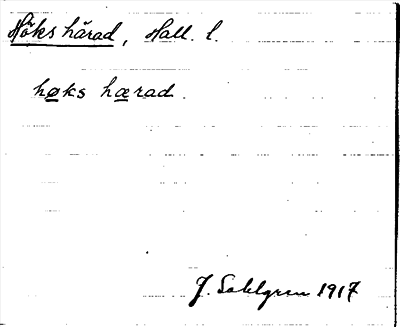 Höks härad, Hall. l.
høks hærad.
J. Sahlgren 1917